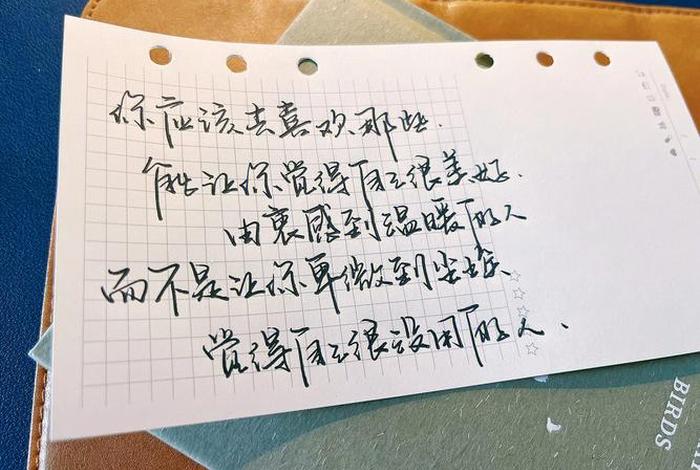 你应该去喜欢那些.
能让你觉得自己很美好.
由衷感到温暖的人
而不是让你卑微到尘埃、
觉得自己很没用的人.
BIRDS